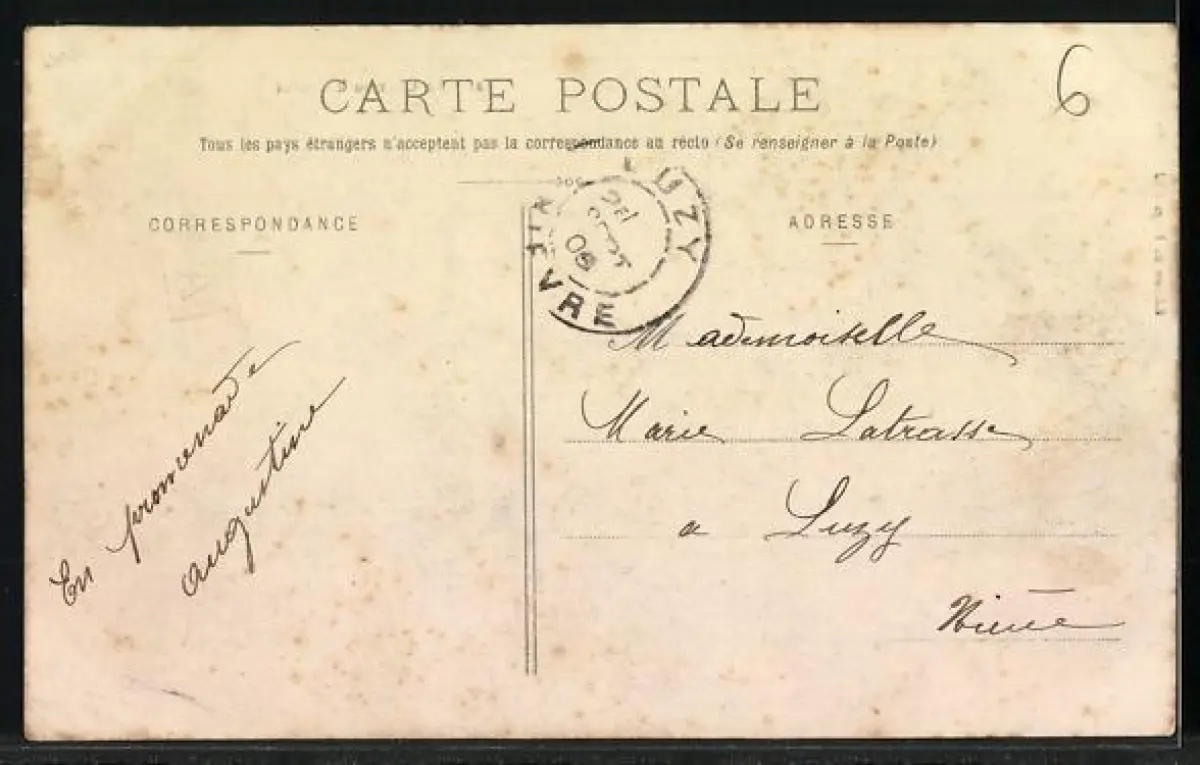 6
CARTE POSTALE
Tous les pays étrangers n'acceptent pas la correspondance au recto (Se renseigner à la Poste)
CORRESPONDANCE
ADRESSE
UZY
VRE
08
Mademoiselle
Marie Latrasse
a Luzy
Nièvre
En promenade
augustine